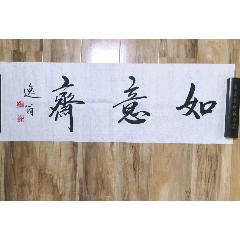 如意齋
逸翁